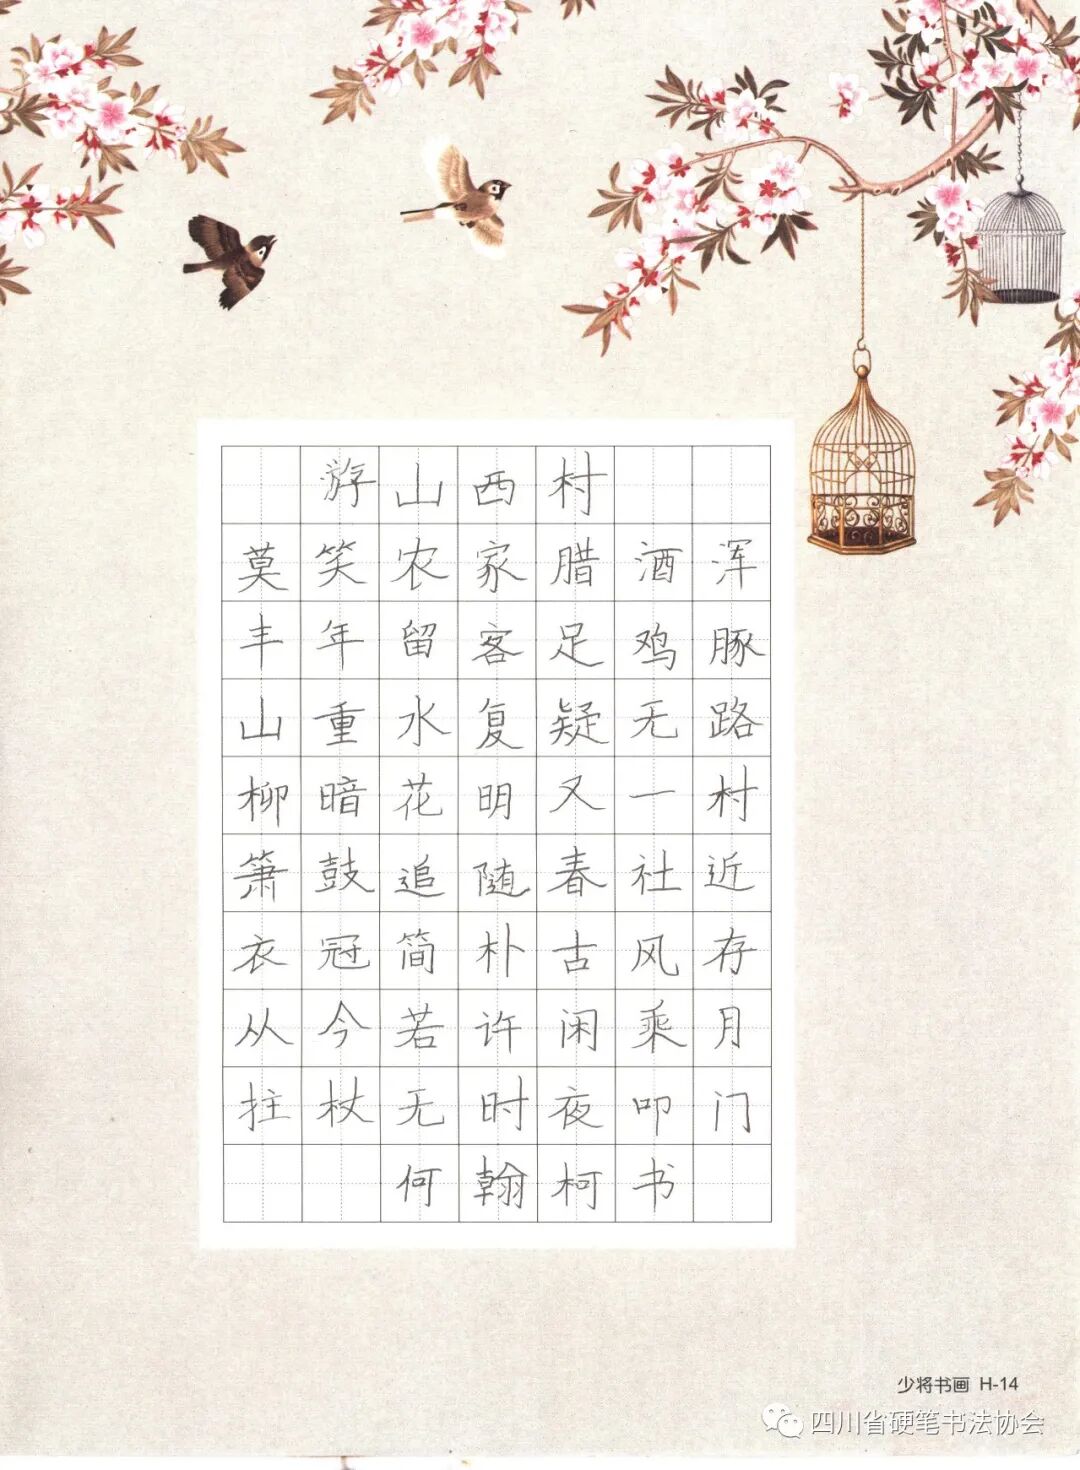 游山西村
莫笑农家腊酒浑
丰年留客足鸡豚
山重水复疑无路
柳暗花明又一村
箫鼓追随春社近
衣冠简朴古风存
从今若许闲乘月
拄杖无时夜叩门
何翰柯书
少将书画 H-14
四川省硬笔书法协会